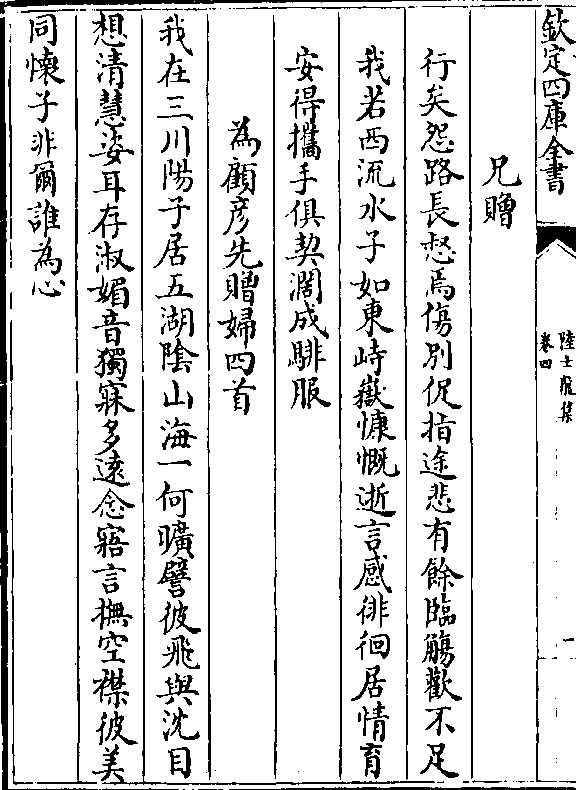 欽定四庫全書
陸士龍集
卷四
一
兄贈
行矣怨路長惄焉傷別促指途悲有餘臨觴歡不足
我若西流水子如東峙嶽慷慨逝言感徘徊居情育
安得攜手俱契濶成騑服
為顧彦先贈婦四首
我在三川陽子居五湖隂山海一何曠譬彼飛與沈目
想清慧姿耳存淑媚音獨寐多逺念寤言撫空襟彼美
同懐子非爾誰為心